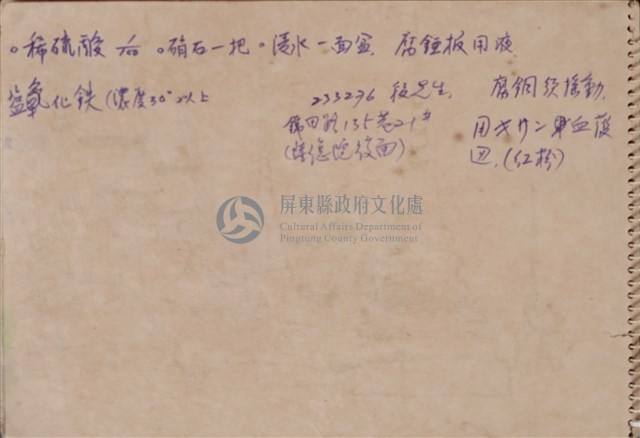 。稀硫酸 。硝石一把 。清水一面盆 腐鋅板用液
氯化鉄(濃度30°以上
233296 段先生.
錦田路135巷21#
(後面)
腐銅須搖動,
用
(紅粉)
屏東縣政府文化處
Cultural Affairs Department of
Pingtung County Government